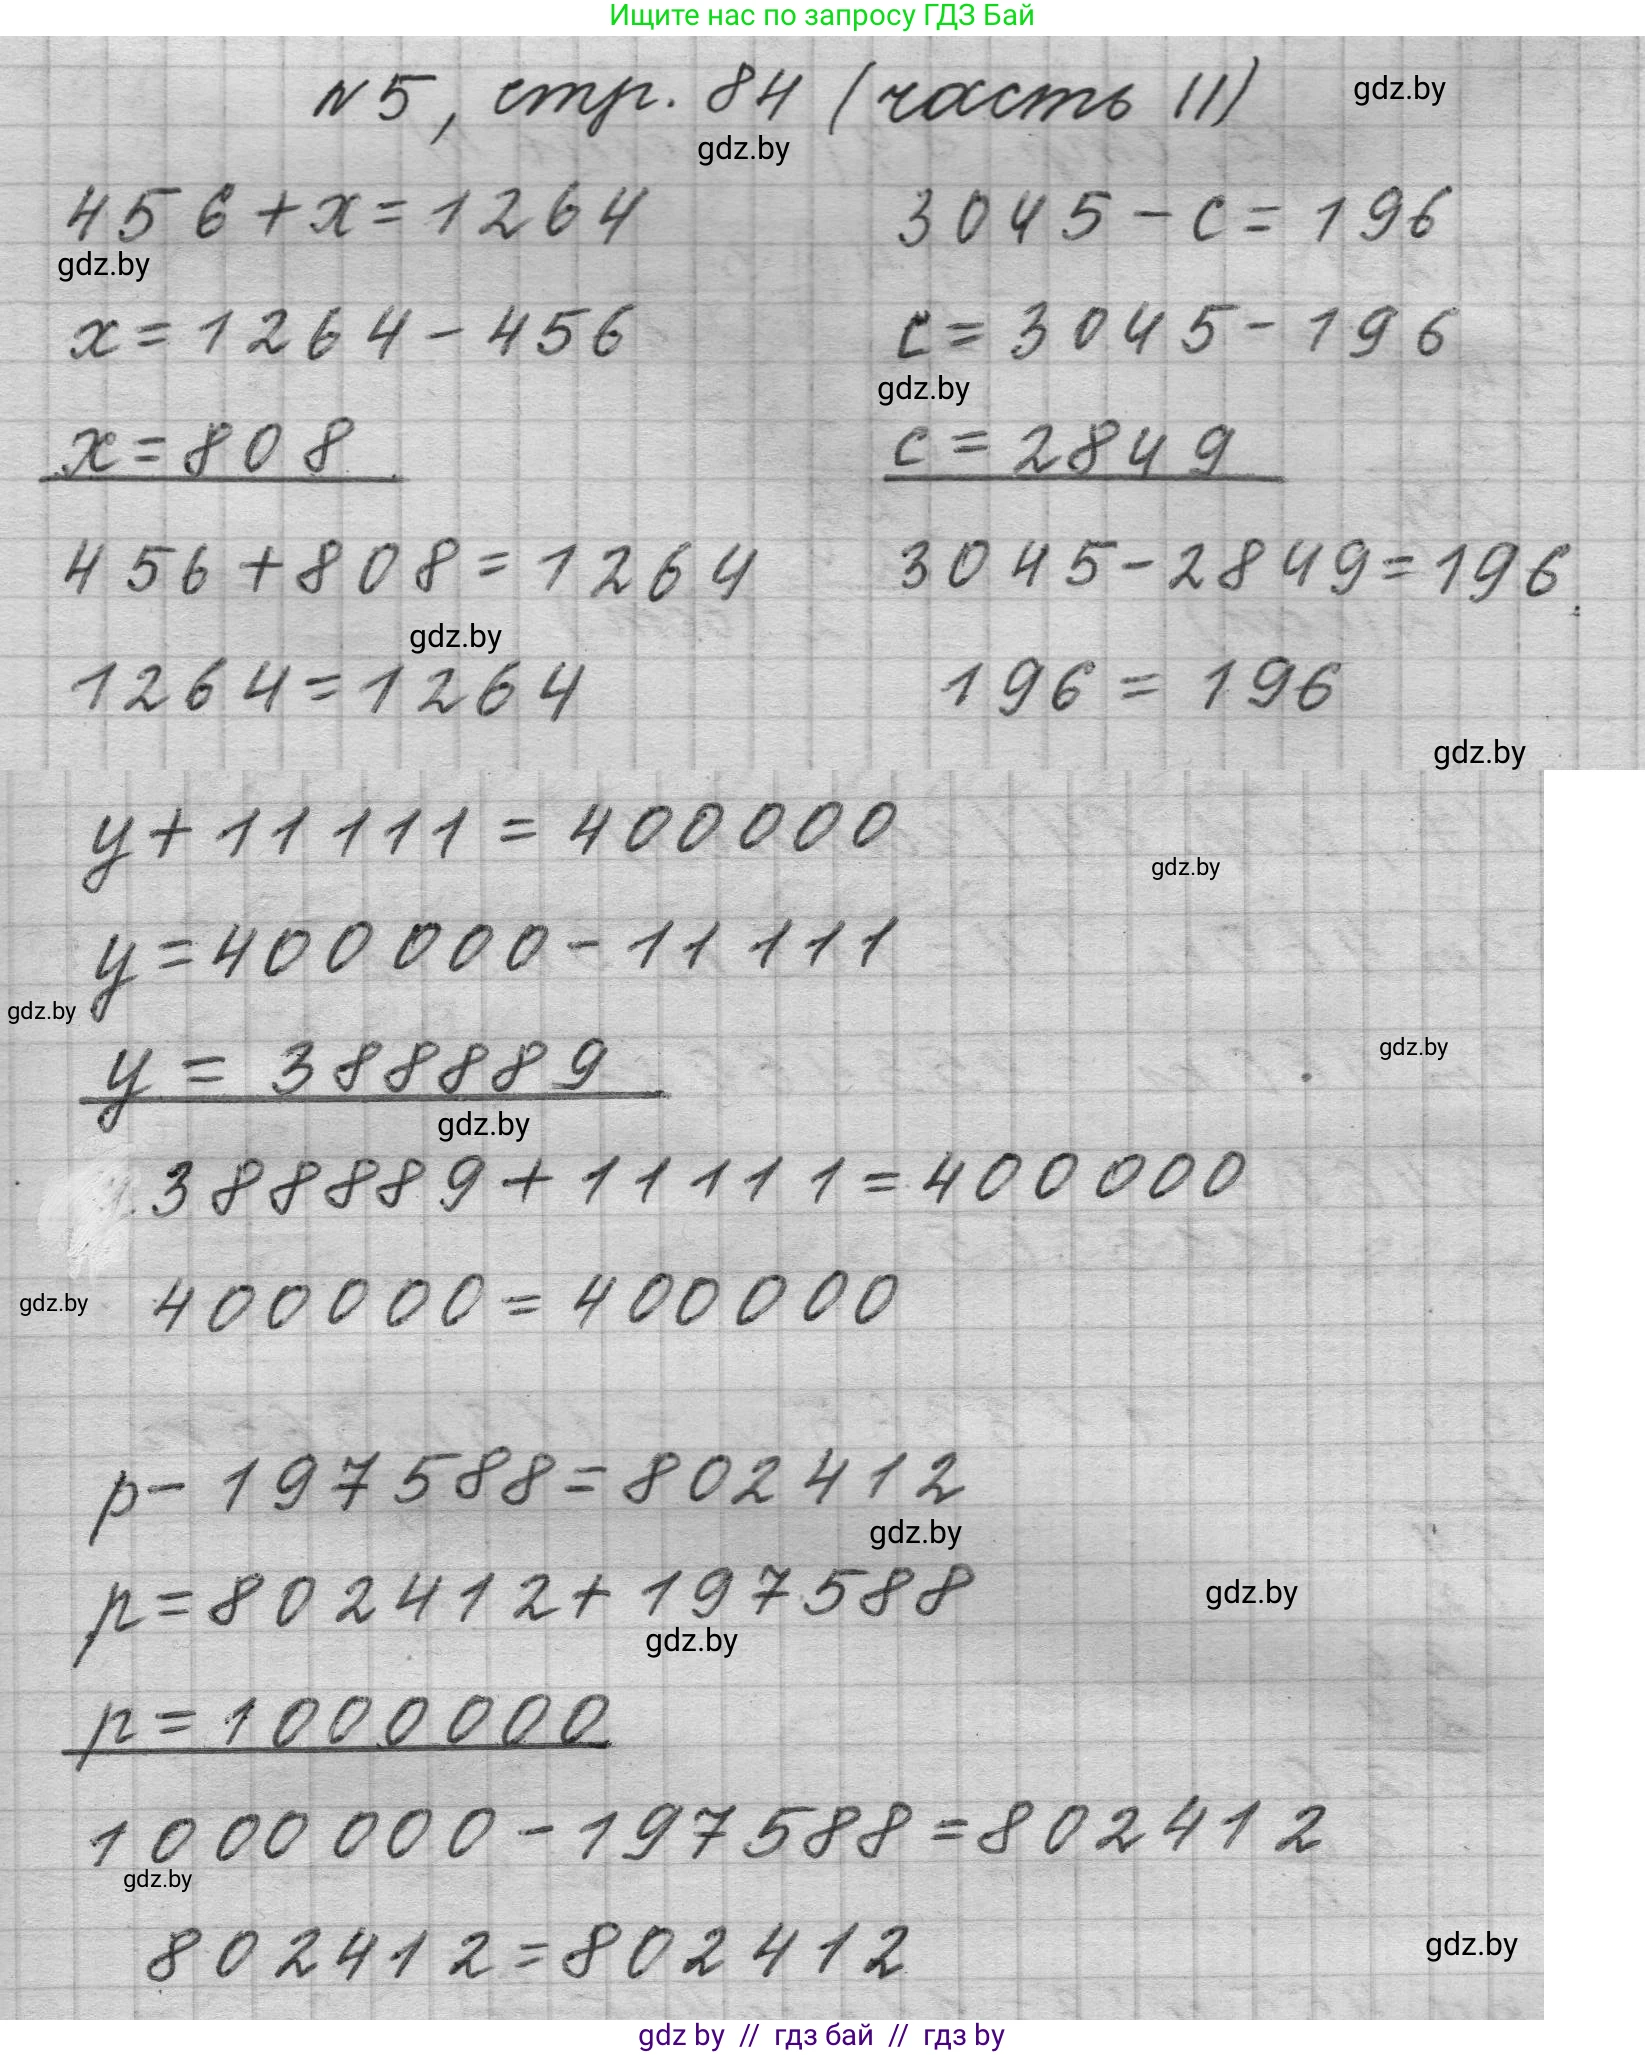 Ищите нас по запросу ГДЗ Бай
№5, стр. 84 (часть II)
gdz.by
gdz.by
456+x=1264
3045-c=196
gdz.by
x=1264-456
c=3045-196
gdz.by
x=808
c=2849
456+808=1264
3045-2849=196
gdz.by
1264=1264
196=196
gdz.by
y+11111=400000
gdz.by
y=400000-11111
gdz.by
gdz.by
y=388889
gdz.by
388889+11111=400000
400000=400000
gdz.by
p-197588=802412
gdz.by
p=802412+197588
gdz.by
gdz.by
p=1000000
1000000-197588=802412
gdz.by
802412=802412
gdz.by
gdz by // гдз бай // гдз by